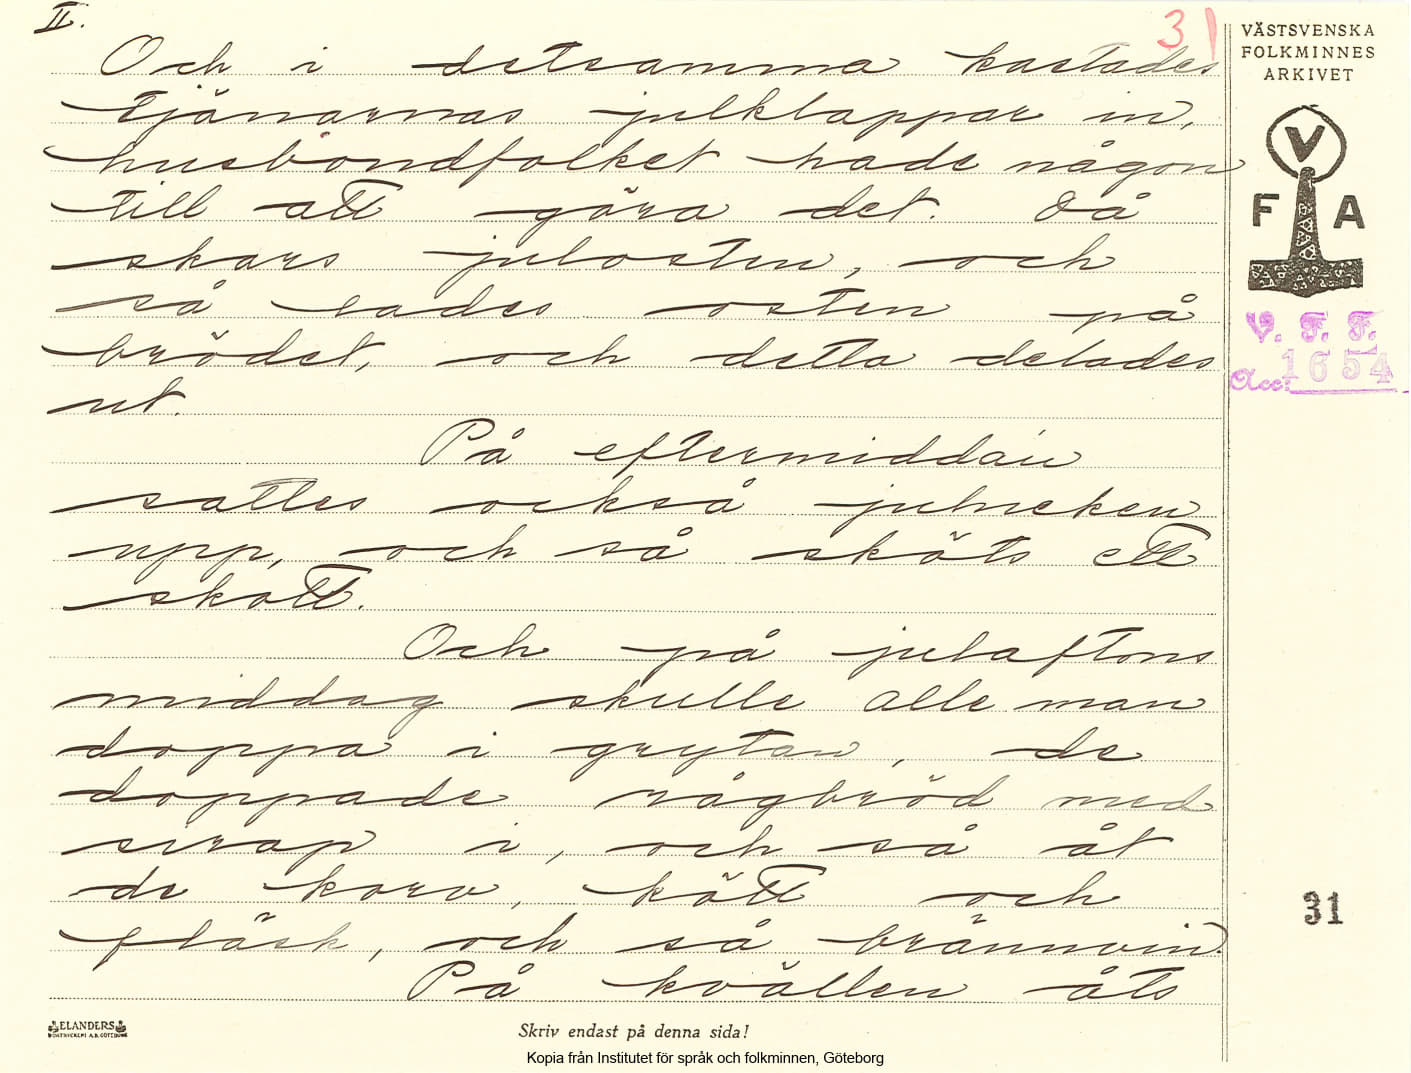 II.
31
VÄSTSVENSKA
FOLKMINNES
ARKIVET
V
F A
V. F. F.
Acc: 1654
Och i detsamma kastades
tjänarnas julklappar in,
husbondfolket hade någon
till att göra det. Då
skars julosten, och
så lades osten på
brödet, och detta delades
ut.
På eftermiddan
sattes också julneken
upp, och så sköts ett
skott.
Och på julaftons
middag skulle alle man
doppa i grytan, de
doppade rågbröd med
sirap i, och så åt
de korv, kött och
fläsk, och så brännvin.
På kvällen åts
31
ELANDERS
BOKTRYCKERI A.B. GÖTEBORG
Skriv endast på denna sida!
Kopia från Institutet för språk och folkminnen, Göteborg